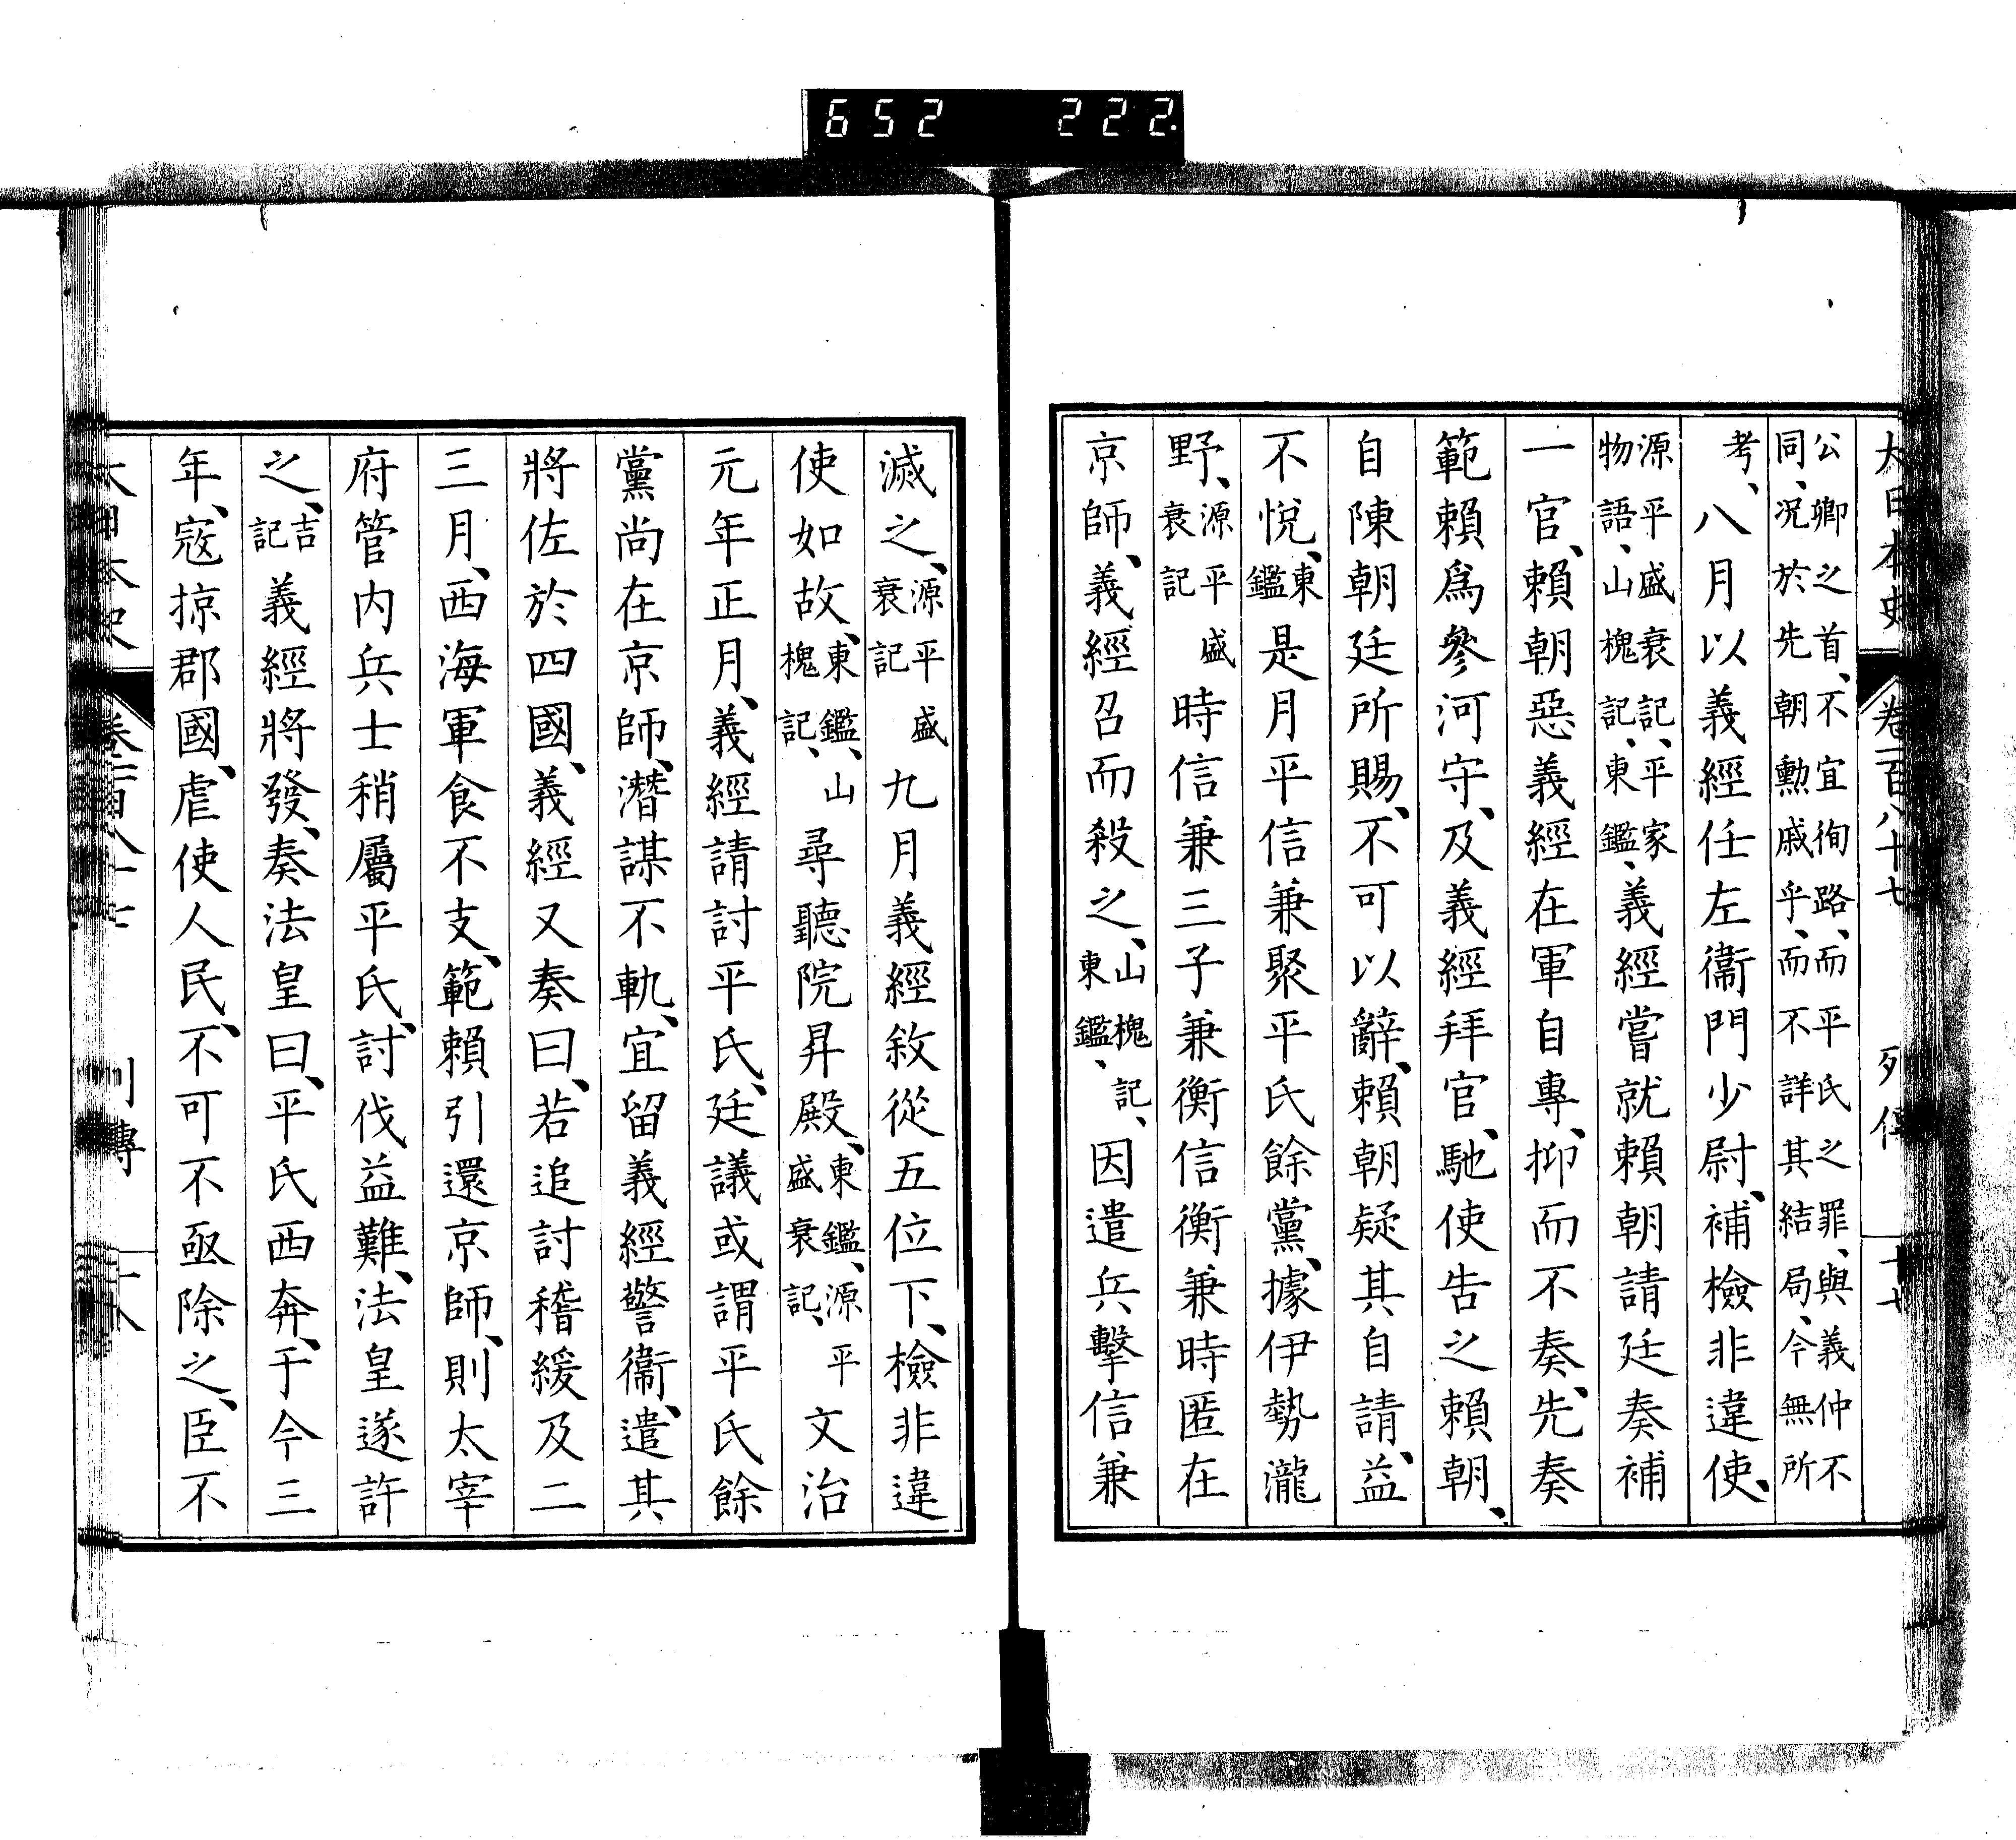 652 222
大日本史 卷一百八十七 列傳 十七
公卿之首、不宜徇路、而平氏之罪、與義仲不
同、況於先朝勳戚乎、而不詳其結局、今無所
考、八月以義經任左衞門少尉、補檢非違使、
源平盛衰記、平家
物語、山槐記、東鑑、義經嘗就賴朝請廷奏補
一官、賴朝惡義經在軍自專、抑而不奏、先奏
範賴爲參河守、及義經拜官、馳使告之賴朝、
自陳朝廷所賜、不可以辭、賴朝疑其自請、益
不悅、東鑑是月平信兼聚平氏餘黨、據伊勢瀧
野、源平盛衰記時信兼三子兼衡信衡兼時匿在
京師、義經召而殺之、山槐記、東鑑、因遣兵擊信兼
滅之、源平盛衰記九月義經敘從五位下、檢非違
使如故、東鑑、山槐記、尋聽院昇殿、東鑑、源平盛衰記、文治
元年正月、義經請討平氏、廷議或謂平氏餘
黨尚在京師、潛謀不軌、宜留義經警衞、遣其
將佐於四國、義經又奏曰、若追討稽緩及二
三月、西海軍食不支、範賴引還京師、則太宰
府管内兵士稍屬平氏、討伐益難、法皇遂許
之、吉記義經將發、奏法皇曰、平氏西奔、于今三
年、寇掠郡國、虐使人民、不可不亟除之、臣不
大日本史 卷一百八十七 列傳 十八